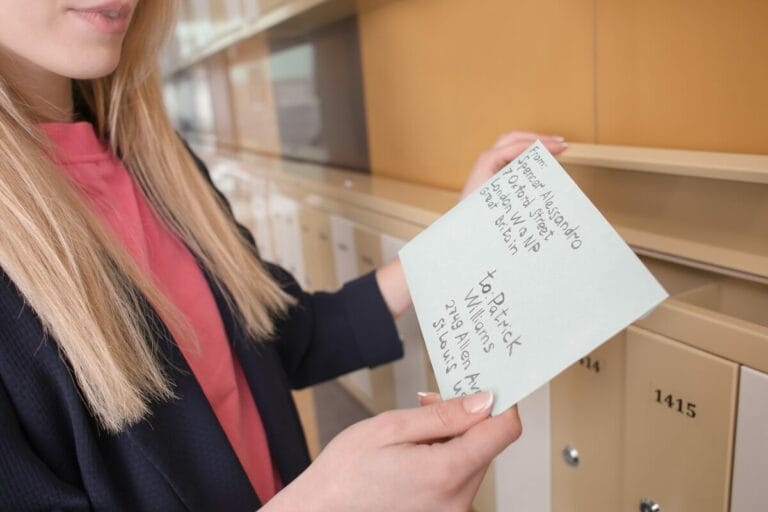 From:
Spencer Alessandro
7 Oxford street
London W1 9 NP
Great Britain
to: Patrick
Williams
2749 Allen Av
St. Louis
414
1415